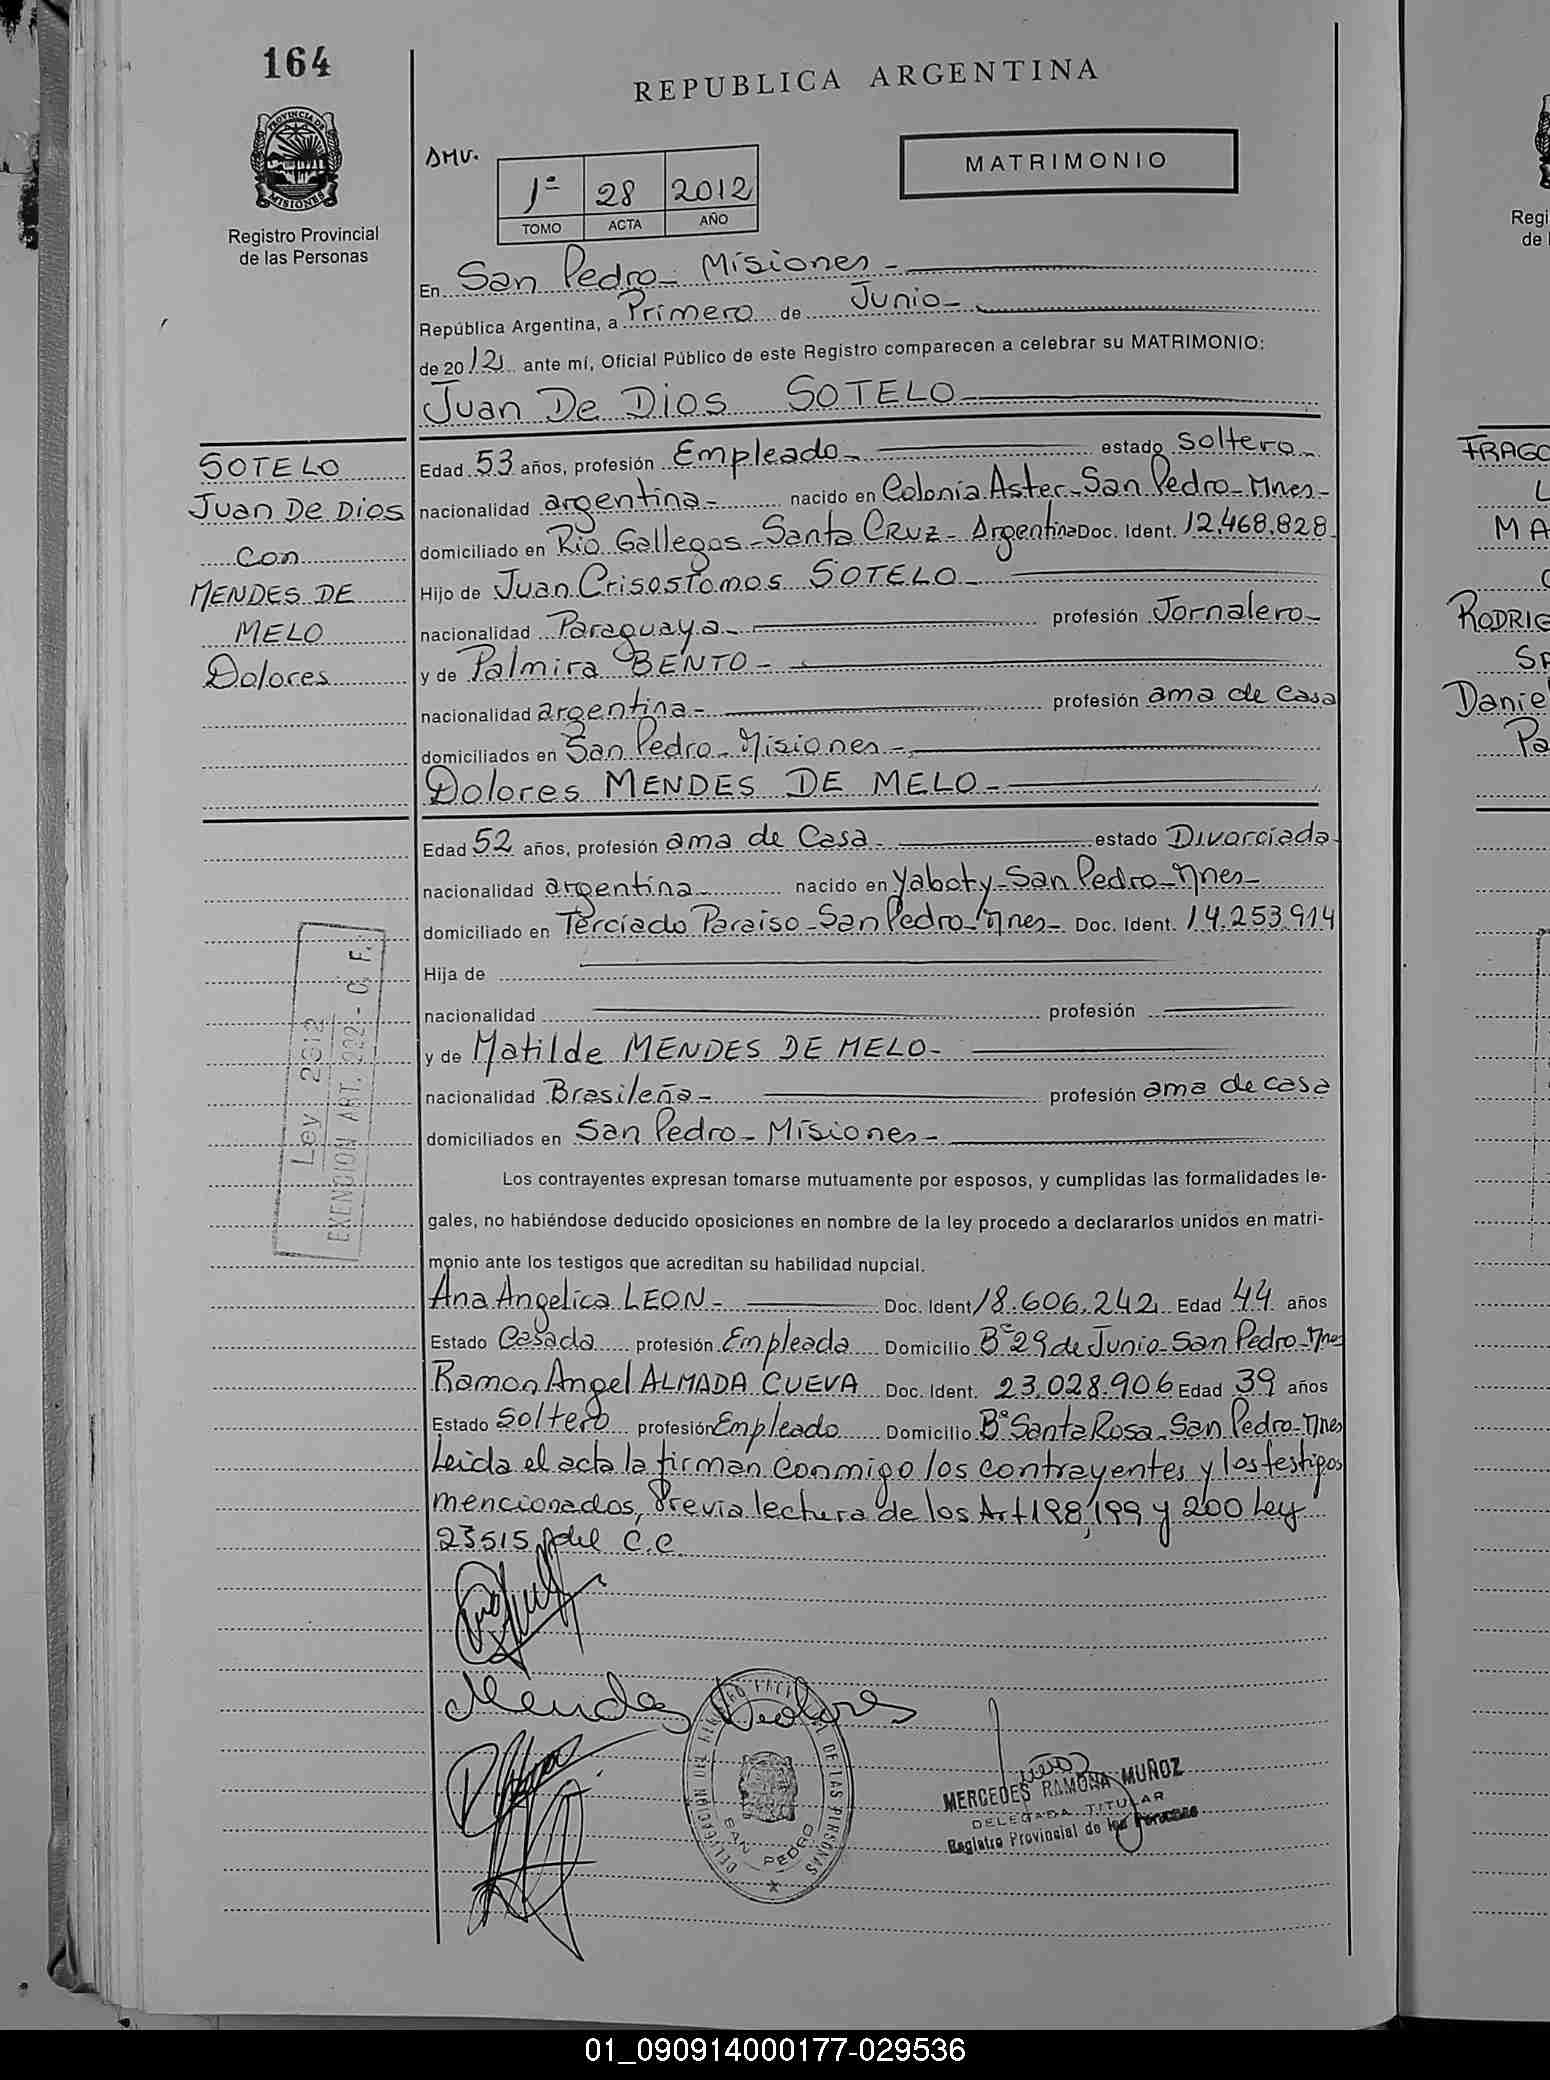 164
REPUBLICA ARGENTINA
PROVINCIA DE MISIONES
Registro Provincial
de las Personas
DMV.
1º 28 2012
TOMO ACTA AÑO
MATRIMONIO
En San Pedro - Misiones -
República Argentina, a Primero de Junio -
de 2012 ante mí, Oficial Público de este Registro comparecen a celebrar su MATRIMONIO:
Juan De Dios SOTELO -
SOTELO
Juan De Dios
Con
MENDES DE
MELO
Dolores
Edad 53 años, profesión Empleado - estado Soltero -
nacionalidad argentina - nacido en Colonia Aster - San Pedro - Mnes -
domiciliado en Rio Gallegos - Santa Cruz - Argentina Doc. Ident. 12.468.828
Hijo de Juan Crisostomos SOTELO -
nacionalidad Paraguaya - profesión Jornalero -
y de Palmira BENTO -
nacionalidad argentina - profesión ama de casa
domiciliados en San Pedro - Misiones -
Dolores MENDES DE MELO -
Edad 52 años, profesión ama de Casa - estado Divorciada -
nacionalidad argentina nacido en Yaboty - San Pedro - Mnes -
domiciliado en Terciado Paraiso - San Pedro - Mnes - Doc. Ident. 14.253.914
Hija de
nacionalidad profesión
y de Matilde MENDES DE MELO -
nacionalidad Brasileña - profesión ama de casa
domiciliados en San Pedro - Misiones -
Ley 2312
EXENCION ART. 222 - C. F.
Los contrayentes expresan tomarse mutuamente por esposos, y cumplidas las formalidades le-
gales, no habiéndose deducido oposiciones en nombre de la ley procedo a declararlos unidos en matri-
monio ante los testigos que acreditan su habilidad nupcial.
Ana Angelica LEON - Doc. Ident 18.606.242 Edad 44 años
Estado Casada profesión Empleada Domicilio Bº 29 de Junio - San Pedro - Mnes
Ramon Angel ALMADA CUEVA Doc. Ident. 23.028.906 Edad 39 años
Estado Soltero profesión Empleado Domicilio Bº Santa Rosa - San Pedro - Mnes
Leida el acta la firman conmigo los contrayentes y los testigos
mencionados, Previa lectura de los Art 198, 199 y 200 Ley
23515 del C.C.
Mendes Dolores
DELEGACION DEL REGISTRO PROVINCIAL DE LAS PERSONAS
SAN PEDRO
MERCEDES RAMONA MUÑOZ
DELEGADA TITULAR
Registro Provincial de las Personas
Regi
de l
FRAGO
L
MA
RODRIG
SA
Danie
Pa
01_090914000177-029536